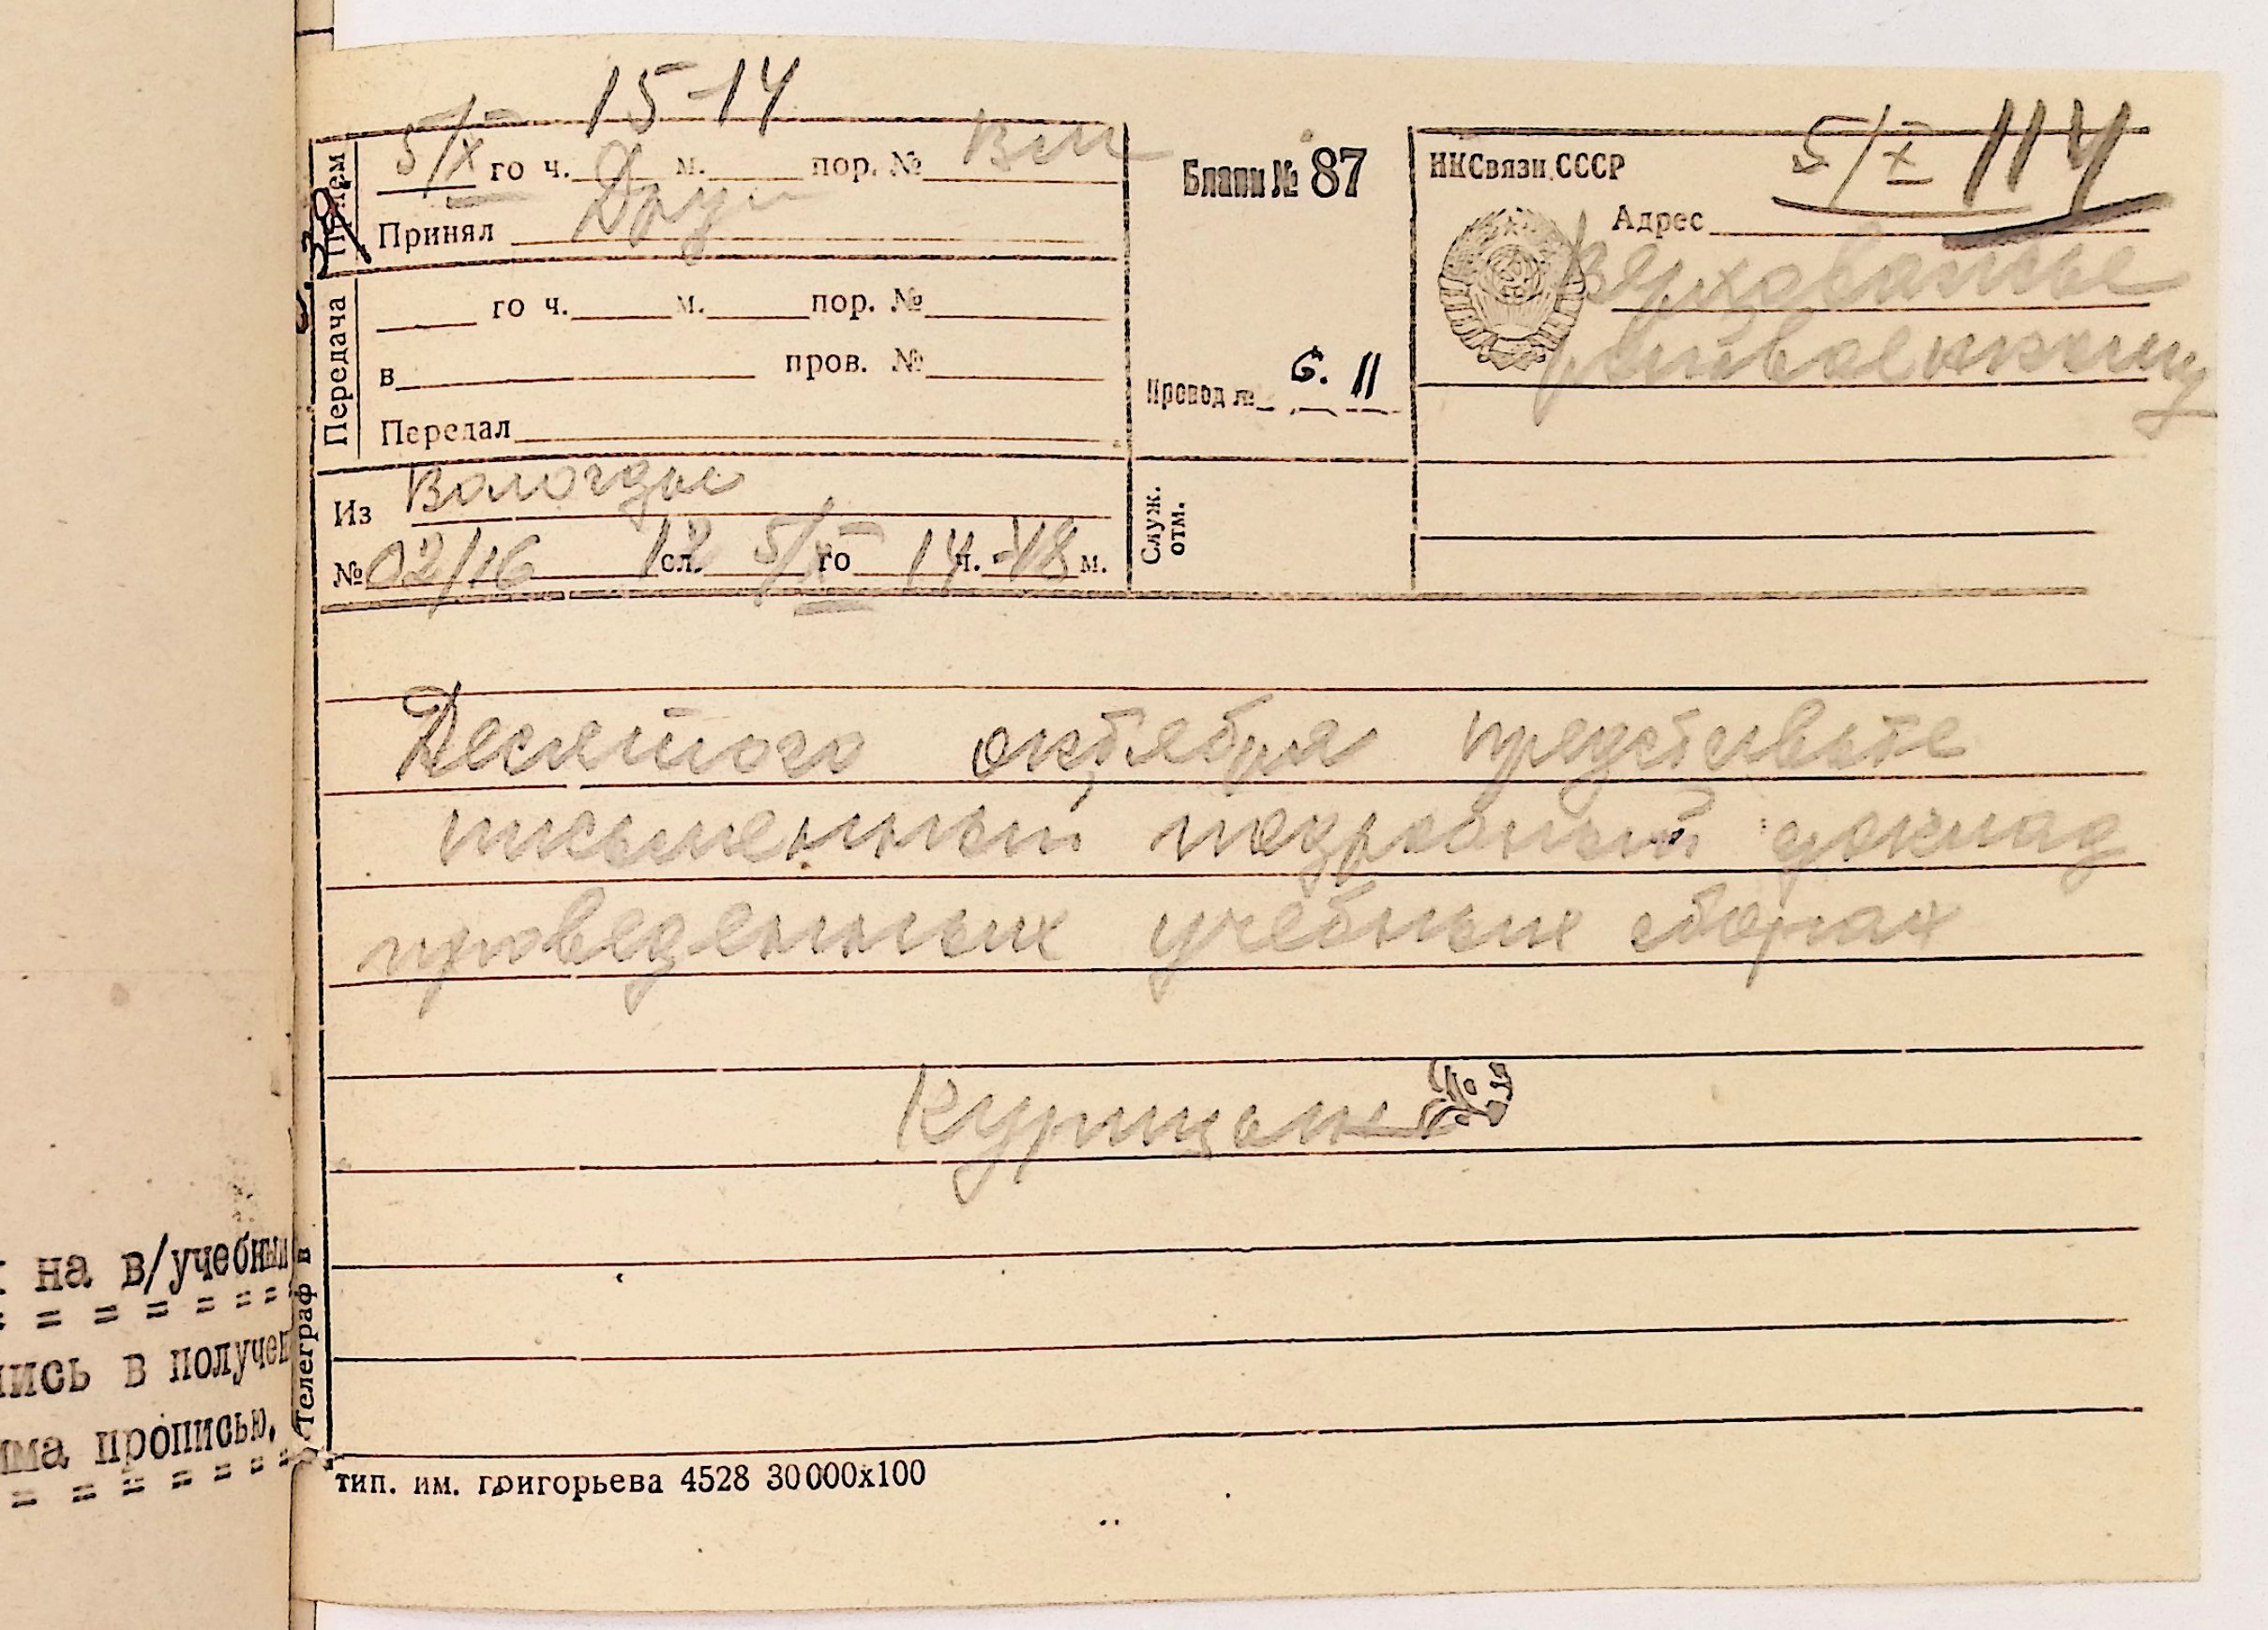 15-14
5/X го ч. м. пор. №
Прием
Принял
Передача
го ч. м. пор. №
в пров. №
Передал
Из Вологды
№ 02/16 12 сл. 5/X го 14 ч. 48 м.
Бланк № 87
Провод № 6. 11
Служ. отм.
НКСвязи СССР
5/X 114
Адрес
Верховажье
райвоенкому
Десятого октября представьте
письменный подробный доклад
проведенных учебных сборах
Курицын
Телеграф в
тип. им. григорьева 4528 30000х100
на в/учебных
в получен
прописью.